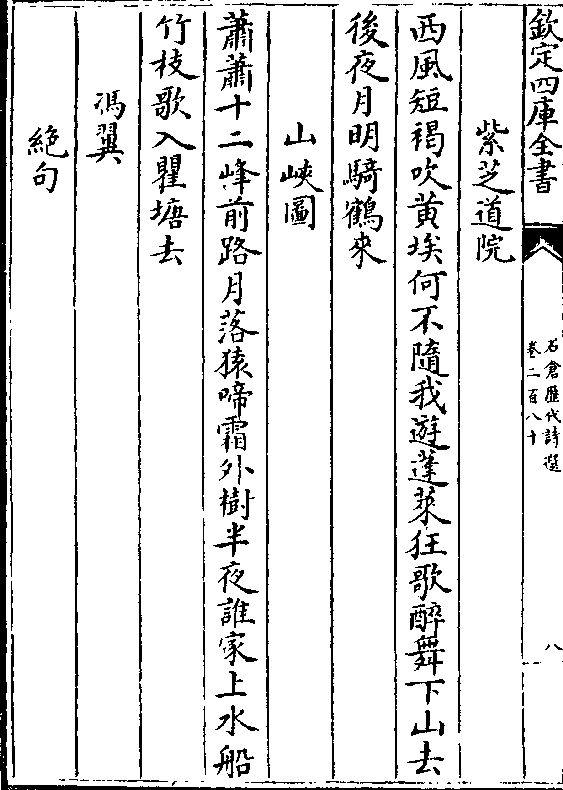 欽定四庫全書
石倉歷代詩選
卷二百八十
八
紫芝道院
西風短褐吹黃埃何不隨我遊蓬萊狂歌醉舞下山去
後夜月明騎鶴來
山峽圖
蕭蕭十二峰前路月落猿啼霜外樹半夜誰家上水船
竹枝歌入瞿塘去
馮翼
絕句